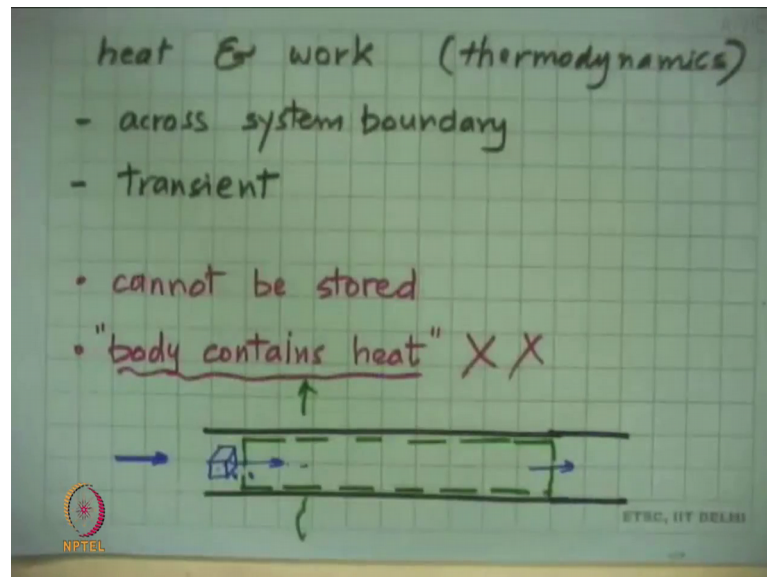 heat & work (thermodynamics)
- across system boundary
- transient
• cannot be stored
• "body contains heat" X X
NPTEL
ETSC, IIT DELHI